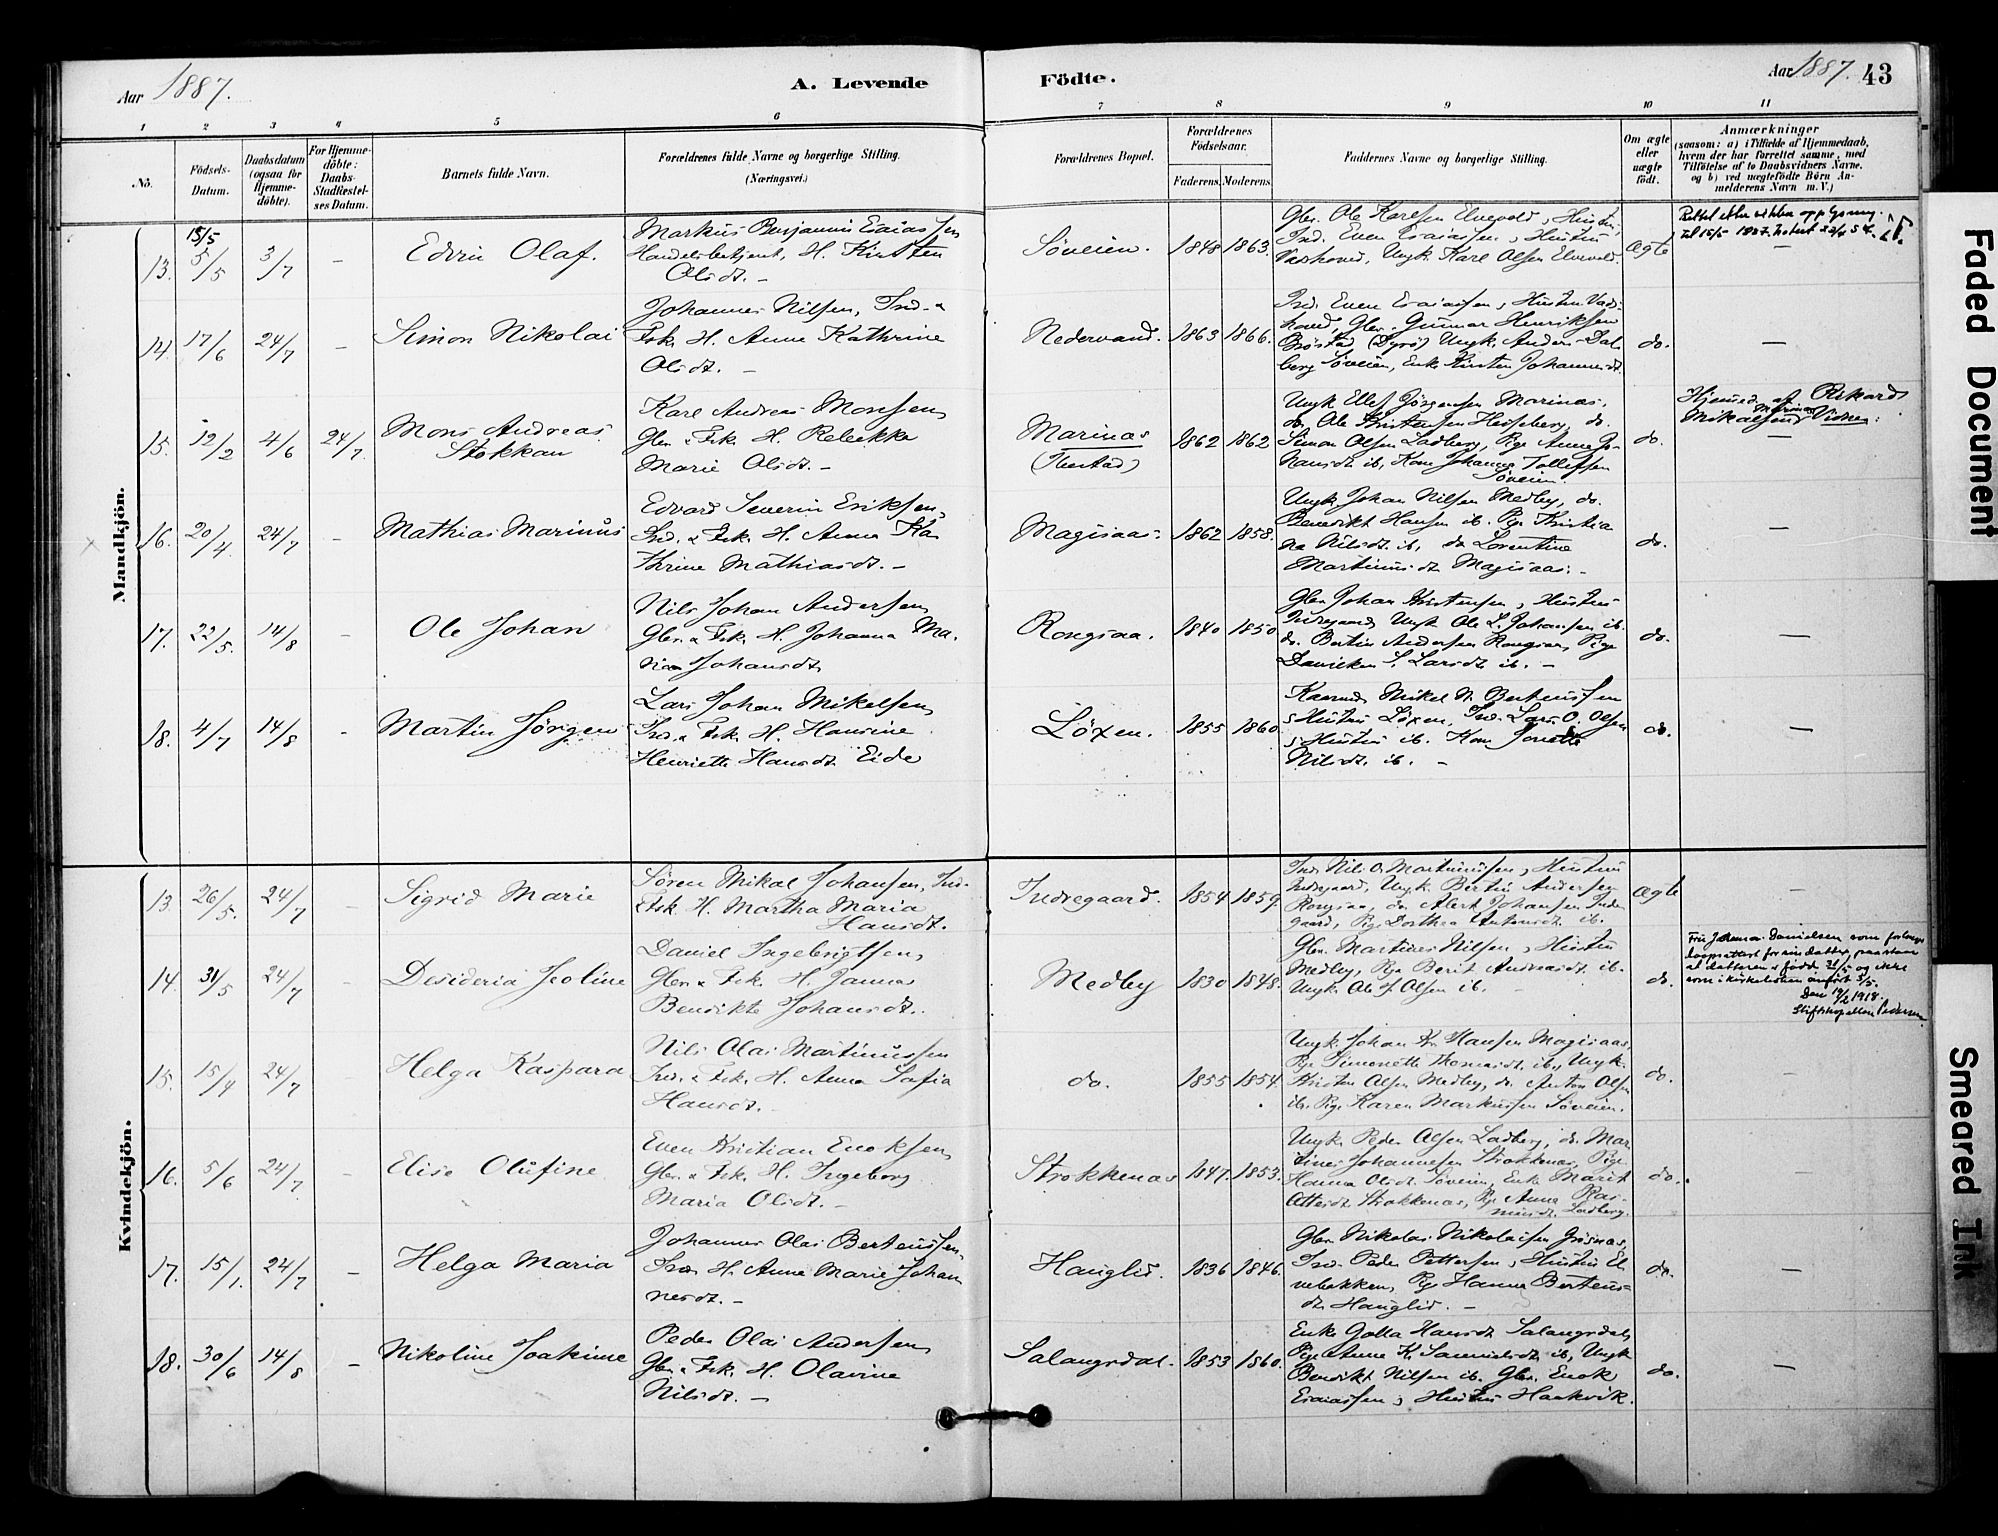 Aar 1887.
A. Levende
Födte.
Aar 1887. 43
1 2 3 4 5 6 7 8 9 10 11
No.
Födsels-
Datum.
Daabsdatum
(ogsaa for
Hjemme-
döbte).
For Hjemme-
döbte:
Daabs-
Stadfæstel-
ses Datum.
Barnets fulde Navn.
Forældrenes fulde Navne og borgerlige Stilling.
(Næringsvei.)
Forældrenes Bopæl.
Forældrenes
Födselsaar.
Faderens. Moderens.
Faddernes Navne og borgerlige Stilling.
Om ægte
eller
uægte
födt.
Anmærkninger
(saasom: a) i Tilfælde af Hjemmedaab,
hvem der har forrettet samme, med
Tilföielse af to Daabsvidners Navne.
og b) ved uægtefödte Börn An-
melderens Navn m. V.)
Mandkjön.
13. 15/5 5/5 3/7 – Edvin Olaf.
Markus Benjamin Esaiassen
Handelsbetjent, H. Kirsten
Olsdt. –
Söveien. 1848 1863.
Gbr. Ole Karlsen Elvevold, Hustru,
Ind. Even Esaiassen, Hustru
Vashoved, Ungk. Karl Olsen Elvevold.
Ægte
14. 17/6 24/7 – Simon Nikolai
Johannes Nilsen, Ind. &
Fsk. H. Anne Kathrine
Olsdt. –
Nedervand. 1863 1866.
Ind. Even Esaiassen, Hustru Vas-
hoved, Gbr. Gunnar Henriksen
Brøstad (Dyrö) Ungk. Anders Dal-
berg Söveien, Enke Kirsten Johannesdt.
do. –
15. 12/2 4/6 24/7. Mons Andreas
Stokkan
Karl Andreas Monsen,
Gbr. & Fsk. H. Rebekka
Marie Olsdt. –
Marinas
(Ibestad)
1862 1862
Ungk. Ellef Jörgensen Marinas,
do. Ole Kristensen Hesseberg, do.
Simon Olsen Ladberg, Pige Anne Jo-
hansdt. ib, Kone Johanna Tollefsen
Söveien.
do.
Hjemmed. af Rikard
Mikalsen Marinas Vidner:
–
16. 20/4. 24/7 – Mathias Marinus
Edvard Severin Eriksen,
Ind. & Fsk. H. Anna Ka-
thrine Mathiasdt. –
Magisaas. 1862 1858.
Ungk. Johan Nilsen Medby, do.
Benedikt Hansen ib. Pige Kristia-
na Nilsdt. ib, do Lorentine
Martinusdt. Magisaas. –
do. –
17. 22/5. 14/8 – Ole Johan
Nils Johan Andersen,
Gbr. & Fsk. H. Johanna Ma-
rie Johansdt.
Rongsaa. 1840 1850
Gbr. Johan Kristensen, Hustru
Indregaard, Ungk. Ole L. Johansen ib.
do. Bertin Andersen Rongsaa, Pige
Daniken S. Larsdt. ib. –
do. –
18. 4/7 14/8 – Martin Jörgen
Lars Johan Mikelsen,
Ind. & Fsk. H. Hansine
Henriette Hansdt. Eide
Löxen. 1855 1860.
Mikel N. Berteussen
& Hustru Löxen, Ind. Lars O. Olsen
& Hustru ib. Kone Jonette
Nilsdt. ib. –
do. –
Kvindekjön.
13. 26/5. 24/7 – Sigrid Marie
Sören Mikal Johansen, Ind.
& Fsk. H. Martha Maria
Hansdt.
Indregaard. 1854 1859.
Ind. Nils O. Martinussen, Hustru
Indregaard, Ungk. Bertin Andersen
Rongsaa, do. Albert Johansen Indre-
gaard, Pige Dorthea Antonsdt. ib.
Ægte –
14. 31/5 24/7 – Desideria Jeoline
Daniel Ingebrigtsen,
Gbr. & Fsk. H. Janna
Benedikte Johansdt.
Medby 1830 1848.
Gbr. Martines Nilsen, Hustru
Medby, Pige Berit Andreasdt. ib.
Ungk. Ole J. Olsen ib. –
do.
Fru Johanna Danielsen som forlanges
daapsattest for sin datter, paastaar
at datteren er född 31/5 og ikke
som i kirkeboken anfört 3/5.
Den 19/2 1918.
Stiftskapellan Pedersen.
15. 15/4 24/7 – Helga Kaspara
Nils Olai Martinussen
Ind. & Fsk. H. Anna Sofia
Hansdt. –
do. 1855 1854.
Ungk. Johan Kr. Hansen Magisaas,
Pige Simonette Thomasdt. ib, Ungk.
Kristen Olsen Medby, do. Anton Olsen
ib. Pige Karen Markussen Söveien.
do. –
16. 5/6 24/7. – Elise Olufine
Even Kristian Enoksen
Gbr. & Fsk. H. Ingeborg
Maria Olsdt. –
Strokkenas 1847. 1853.
Ungk. Peder Olsen Ladberg, do. Mar-
tines Johannesen Strokkenas, Pige
Hanna Olsdt. Söveien, Enke Marit
Ottesdt. Strokkenas, Pige Anna Ras-
musdt. Ladberg.
do. –
17. 15/1. 24/7 – Helga Maria
Johannes Olai Berteussen,
Ind. H. Anne Marie Johan-
nesdt. –
Hauglid. 1836 1846.
Gbr. Nikolai Nikolaisen Grösnas,
Ind. Peder Pettersen, Hustru El-
vebakken, Pige Hanna Berteus-
dt. Hauglid. –
do. –
18. 30/6 14/8 – Nikoline Joakime
Peder Olai Andersen,
Gbr. & Fsk. H. Olavine
Nilsdt. –
Salangsdal. 1853 1860.
Enke Golla Hansdt. Salangsdal,
Pige Anne K. Samuelsdt. ib, Ungk.
Benedikt Nilsen ib. Gbr. Enok
Esaiassen, Hustru Haakvik.
do. –
Faded Document
Smeared Ink